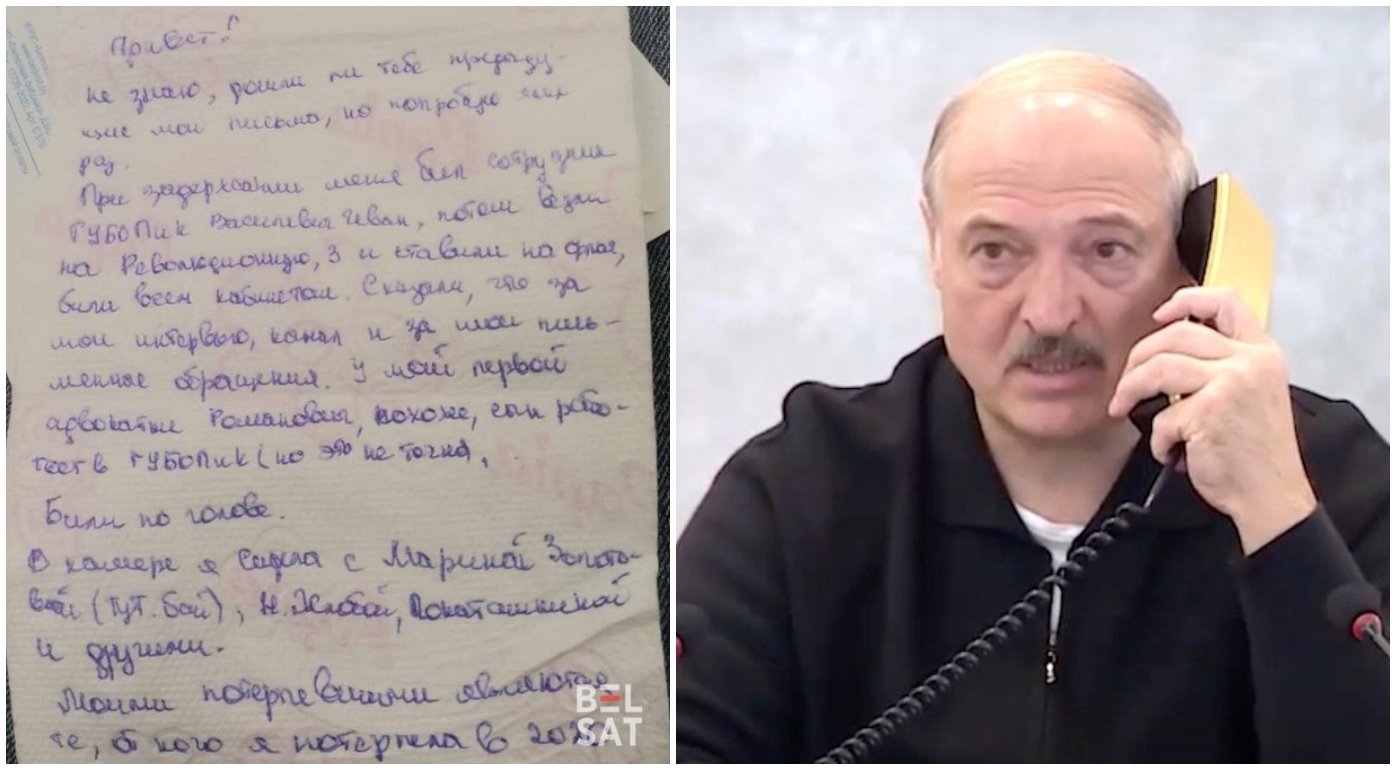 Привет!
не знаю, дошли ли тебе предыду-
щие мои письма, но попробую
раз.
При задержании меня бил сотрудник
ГУБОПиК Василевич Иван, потом везли
на Революционную, 3 и ставили на флаг,
били всем кабинетом. Сказали, что за
мои интервью, канал и за мои пись-
менные обращения. У моей первой
адвокатки Романовской, похоже, сын рабо-
тает в ГУБОПиК (но это не точно).
Били по голове.
В камере я сидела с Мариной Золото-
вой (тут.бай), Н. Хлобой, Локоташкиной
и другими.
Моими потерпевшими являются
те, от кого я потерпела в
BEL
SAT